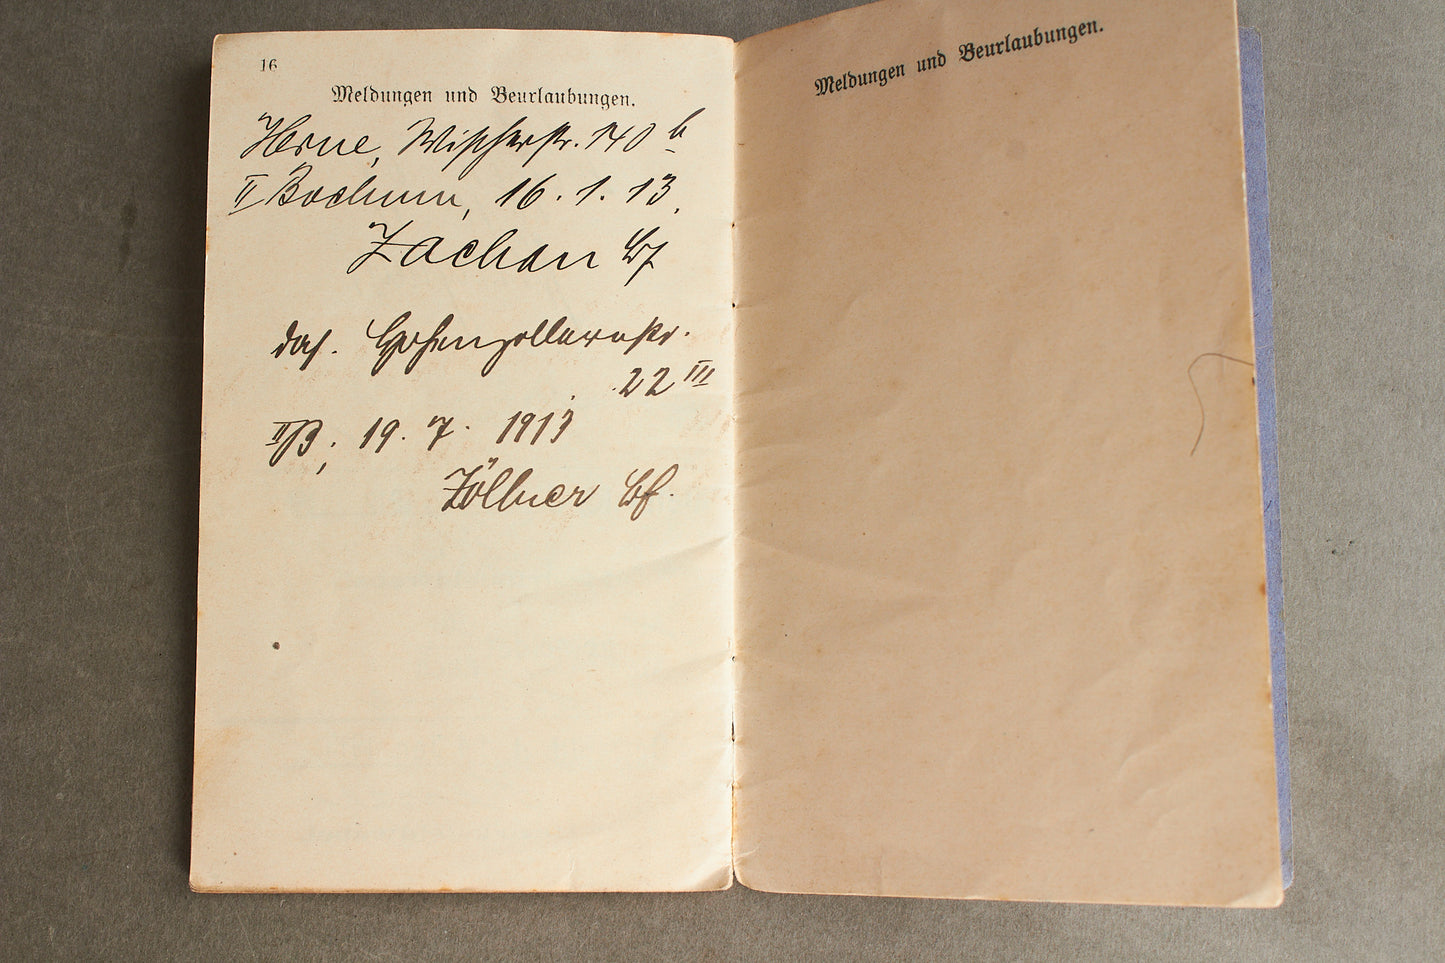 16
Meldungen und Beurlaubungen.
Herne, Wischerstr. 140 b
II Bochum, 16. 1. 13.
Zachau Bf
das. Hohenzollernstr.
22 III
II/B, 19. 7. 1913
Zöllner Bf.
Meldungen und Beurlaubungen.